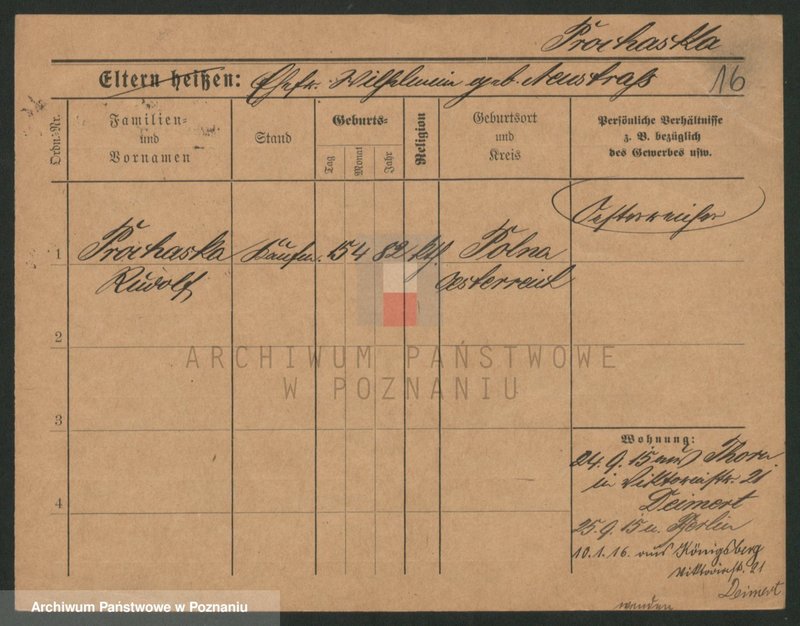 Prochaska
Eltern heißen: Ehefr. Wilhelmin geb. Neustraß
16
Ordn.-Nr.
Familien-
und
Vornamen
Stand
Geburts-
Tag
Monat
Jahr
Religion
Geburtsort
und
Kreis
Persönliche Verhältnisse
z. B. bezüglich
des Gewerbes usw.
Oesterreicher
1
Prochaska Kaufm. 15 4 82 ktl. Polna
Rudolf Oesterreich
2
ARCHIWUM PAŃSTWOWE
W POZNANIU
3
4
Wohnung:
24.9.15 aus Thorn
in Viktoriastr. 21
Deimert
25.9.15 n. Berlin
10.1.16. aus Königsberg
Viktoriast. 21
Deimert
wenden
Archiwum Państwowe w Poznaniu